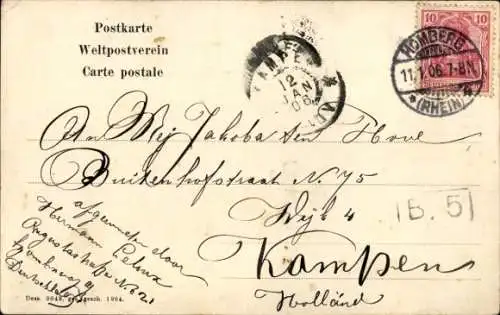 Postkarte
Weltpostverein
Carte postale
10 10
HOMBERG
11.1.06. 7-8N.
* (RHEIN)
KAMPEN
12
JAN
06
An Mej Jakoba ten Hove
Buitenhofstraat N. 75
Wijk 4
Kampen
Holland
[B. 5]
afgezonden door
Hermann
Augustastraße N. 62
Homberg
Deutschland
ges. gesch. 1904.